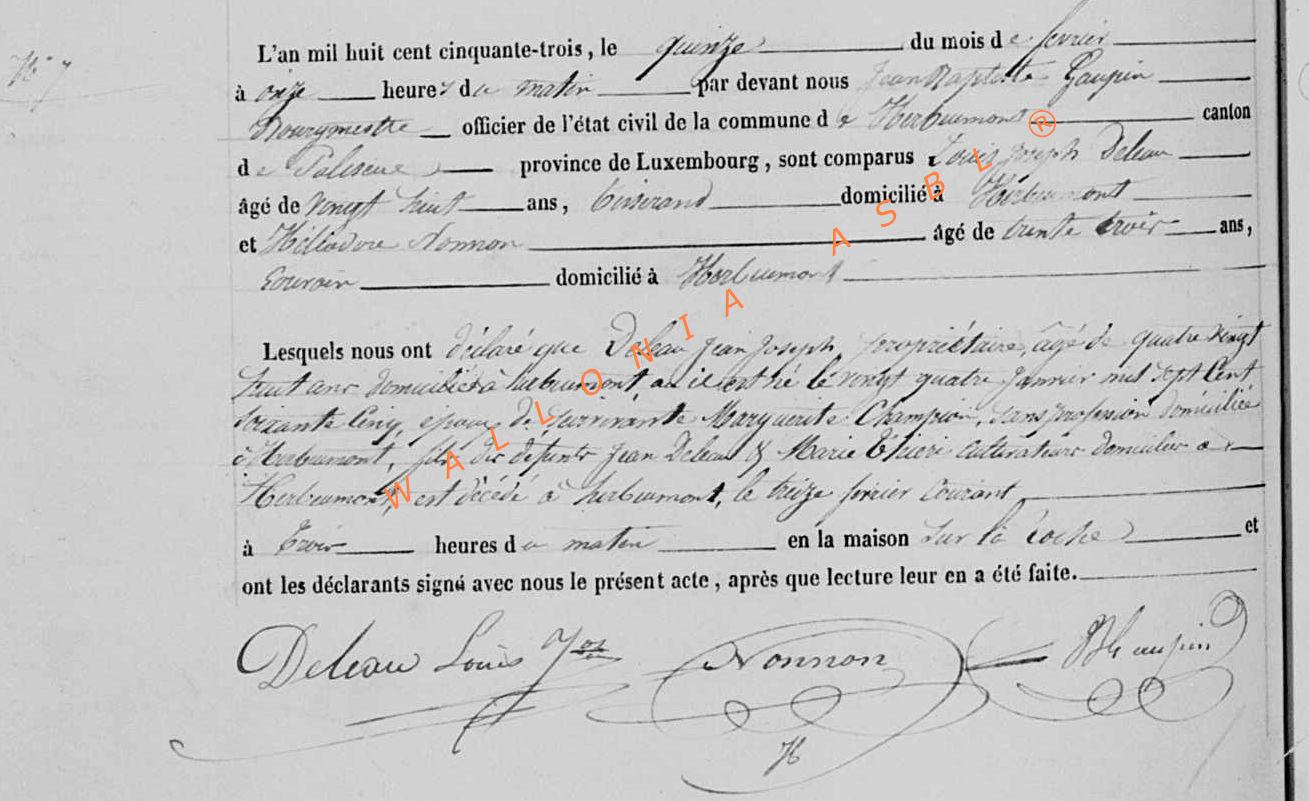 N° 7
L'an mil huit cent cinquante-trois, le quinze du mois de fevrier
à onze heures du matin par devant nous Jean Baptiste Gaupin
Bourgmestre officier de l'état civil de la commune de Herbeumont canton
de Paliseul province de Luxembourg, sont comparus Louis Joseph Deleau
âgé de vingt huit ans, tisserand domicilié à Herbeumont
et Héliodore Nonnon âgé de trente trois ans,
domicilié à Herbeumont
Lesquels nous ont déclaré que Deleau Jean Joseph, propriétaire, âgé de quatre vingt
huit ans domicilié à herbeumont, où il est né le vingt quatre Janvier mil sept Cent
soixante Cinq, époux de survivante Marguerite Champion, sans profession domiciliée
à Herbeumont, fils des défunts Jean Deleau & Marie cultivateurs domiciliés à
Herbeumont, est décédé à herbeumont, le treize février courant
à trois heures du matin en la maison sur la roche et
ont les déclarants signé avec nous le présent acte, après que lecture leur en a été faite.
Deleau Louis Jos Nonnon JB Gaupin
H
WALLONIA ASBL ®